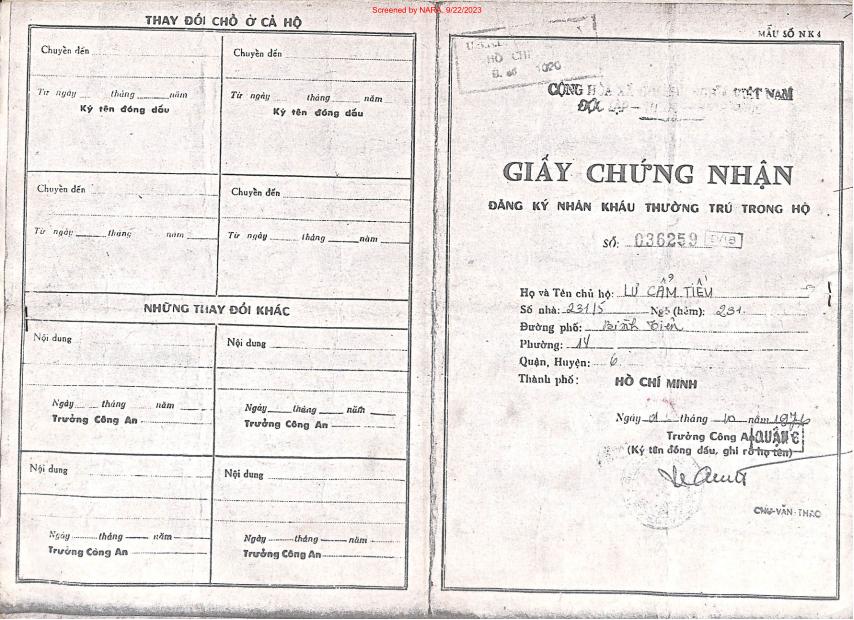 Screened by NARA, 9/22/2023
THAY ĐỔI CHỖ Ở CẢ HỘ
Chuyển đến
Từ ngày tháng năm
Ký tên đóng dấu
Chuyển đến
Từ ngày tháng năm
Ký tên đóng dấu
Chuyển đến
Từ ngày tháng năm
Chuyển đến
Từ ngày tháng năm
NHỮNG THAY ĐỔI KHÁC
Nội dung
Ngày tháng năm
Trưởng Công An
Nội dung
Ngày tháng năm
Trưởng Công An
Nội dung
Ngày tháng năm
Trưởng Công An
Nội dung
Ngày tháng năm
Trưởng Công An
MẪU SỐ NK4
HỒ CHÍ
CỘNG HÒA XÃ VIỆT NAM
ĐỘC LẬP
GIẤY CHỨNG NHẬN
ĐĂNG KÝ NHÂN KHẨU THƯỜNG TRÚ TRONG HỘ
SỐ: 036259
Họ và Tên chủ hộ: LƯ CẨM TIỀU
Số nhà: 231/5 Ngõ (hẻm): 231
Đường phố: Bình Tiên
Phường: 14
Quận, Huyện: 6
Thành phố: HỒ CHÍ MINH
Ngày tháng 10 năm 1976
Trưởng Công An QUẬN 6
(Ký tên đóng dấu, ghi rõ họ tên)
CHU-VĂN-THẠO